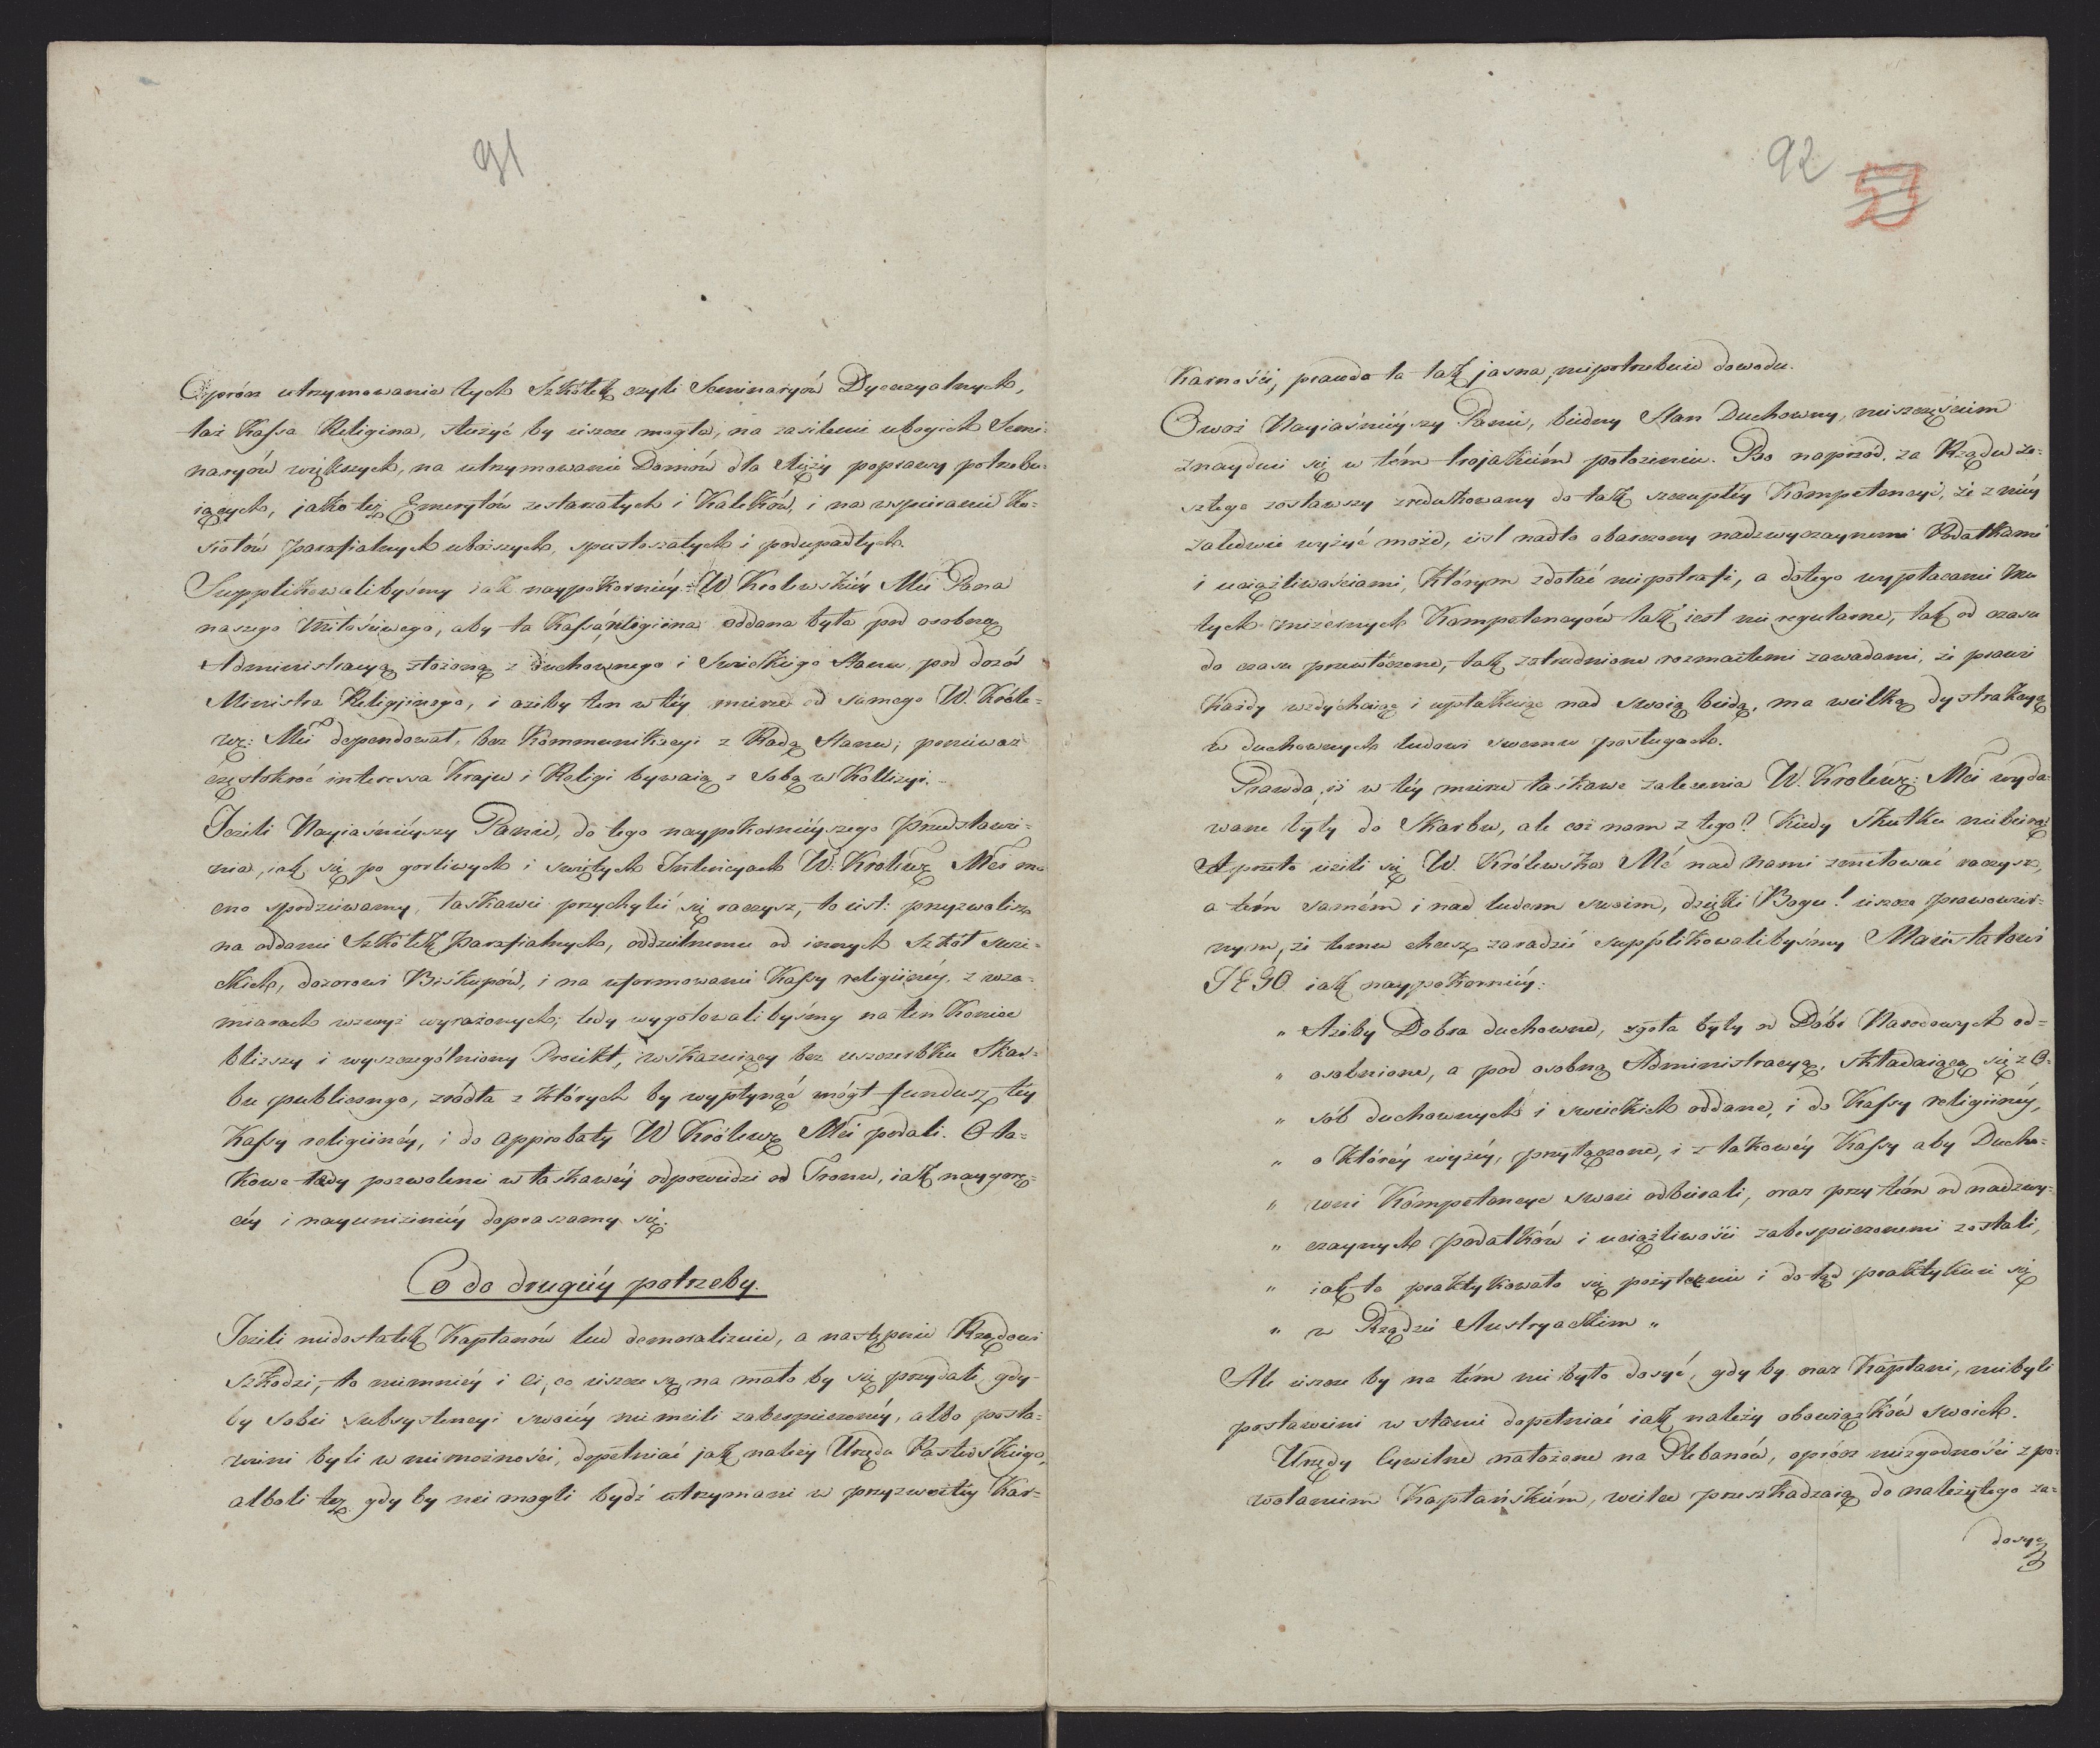 91
Oprócz utrzymowania tych Szkółek czyli Seminaryów Dyecezyalnych,
taż Kassa Religina, służyć by ieszcze mogła, na zasilenie ubogich Semi-
naryów większych, na utrzymowanie Domów dla Xięży poprawy potrzebu-
iących, jako też Emerytów zestarzałych i Kaleków, i na wspieranie Ko-
ściołów parafialnych uboższych, spustoszałych i podupadłych.
Supplikowalibyśmy iak naypokorniéy W Krolewskiéy Mci Pana
naszego Miłościwego, aby ta Kassa religiina oddana była pod osobną
Administracyą złożoną z duchownego i Swieckiego Stanu, pod dozór
Ministra Religijnego, i ażeby ten w téy mierze od samego W. Króle-
wz: Mci dependował, bez Kommunikacyi z Radą Stanu; ponieważ
częstokroć interessa Kraju i Religi bywaią z sobą w Kollizyi.
Jeżeli Nayiaśnieyszy Panie, do tego naypokornieyszego Przedstawie-
nia, iak się po gorliwych i swiętych Intencyach W: Krolewz Mci mo
cno spodziewamy, łaskawie przychylić się raczysz, to iest: przyzwolisz
na oddanie Szkółek Parafialnych, oddzielnemu od innych szkół świe-
ckich, dozorowi Biskupów, i na uformowanie Kassy religiinéy, z wza-
miarach wzwyż wyrażonych; tedy wygotowalibyśmy na ten Koniec
bliższy i wyszczególniony Proiekt, wskazuiący bez uszczerbku Skar-
bu publicznego, zródła z których by wypłynąć mógł fundusz téy
Kassy religiinéy, i do approbaty W Królewz Mci podali. O ta-
kowe tedy pozwolenie w łaskawéy odpowiedzi od Tronu, iak naygorę-
céy i nayuniżeniéy dopraszamy się.
Co do drugiéy potrzeby.
Jeżeli niedostatek Kapłanów lud demoralizuie, a następnie Rządowi
szkodzi, to niemniéy i ci, co ieszcze są na mało by się przydali, gdy-
by sobie subsystencyi swoiéy nie mieli zabespieczonéy, albo posta-
wieni byli w niemożności, dopełniać jak należy Urzędu Pasterskiego,
alboli też gdy by nie mogli bydź utrzymani w przyzwoitéy Kar-
92
53
Karności, prawda ta tak jasna, niepotrzebuie dowodu.
Owoż Nayiaśnieyszy Panie, biedny Stan Duchowny, nieszczęściem
znayduie się w tém trojakiém położeniu. Bo naprzód, za Rządu ze-
szłego zostawszy zredukowany do tak szczupłéy Kompetencyi, że z niéy
zaledwie wyżyć może, iest nadto obarczony nadzwyczaynemi Podatkami
i uciążliwościami, którym zdołać niepotrafi, a dotego wypłacanie Mu
tych mizernych Kompetencyów tak iest nie regularne, tak od czasu
do czasu przewłóczone, tak zatrudnione rozmaitemi zawadami, że prawie
każdy wzdychaiąc i upłakuiąc nad swoią biedą, ma wielką dystrakcyą
w duchownych ludowi swemu posługach.
Prawda, iż w téy mierze łaskawe zalecenia W. Krolewz: Mci wyda-
wane były do Skarbu, ale coż nam z tego? Kiedy skutku niebiorą.
A przeto ieżeli się W. Królewska Mć nad nami zmiłować raczysz,
a tém samém i nad ludem swoim, dzięki Bogu! ieszcze prawowier-
nym, że temu chcesz zaradzić supplikowalibyśmy Maiestatowi
JEGO iak naypokorniéy:
" Ażeby Dobra duchowne, zgoła były od Dóbr Narodowych od-
" osobnione, a pod osobną Administracyą, składaiącą się z O-
" sób duchownych i swieckich oddane, i do Kassy religiinéy,
" o któréy wyżéy, przyłączone, i z takowéy Kassy aby Ducho-
" wni Kompetencye swoie odbierali, oraz przytém od nadzwy-
" czaynych podatków i uciążliwości zabespieczonemi zostali,
" iak to praktykowało się pożytecznie i dotąd praktykuie się
" w Rządzie Austryackim "
Ale ieszcze by na tém nie było dosyć, gdy by oraz Kapłani, niebyli
postawieni w stanie dopełniać iak należy obowiązków swoich.
Urzędy Cywilne nałożone na Plebanów, oprócz niezgodności z po-
wołaniem Kapłańskiém, wiele przeszkadzaią do należytego za-
dosyć